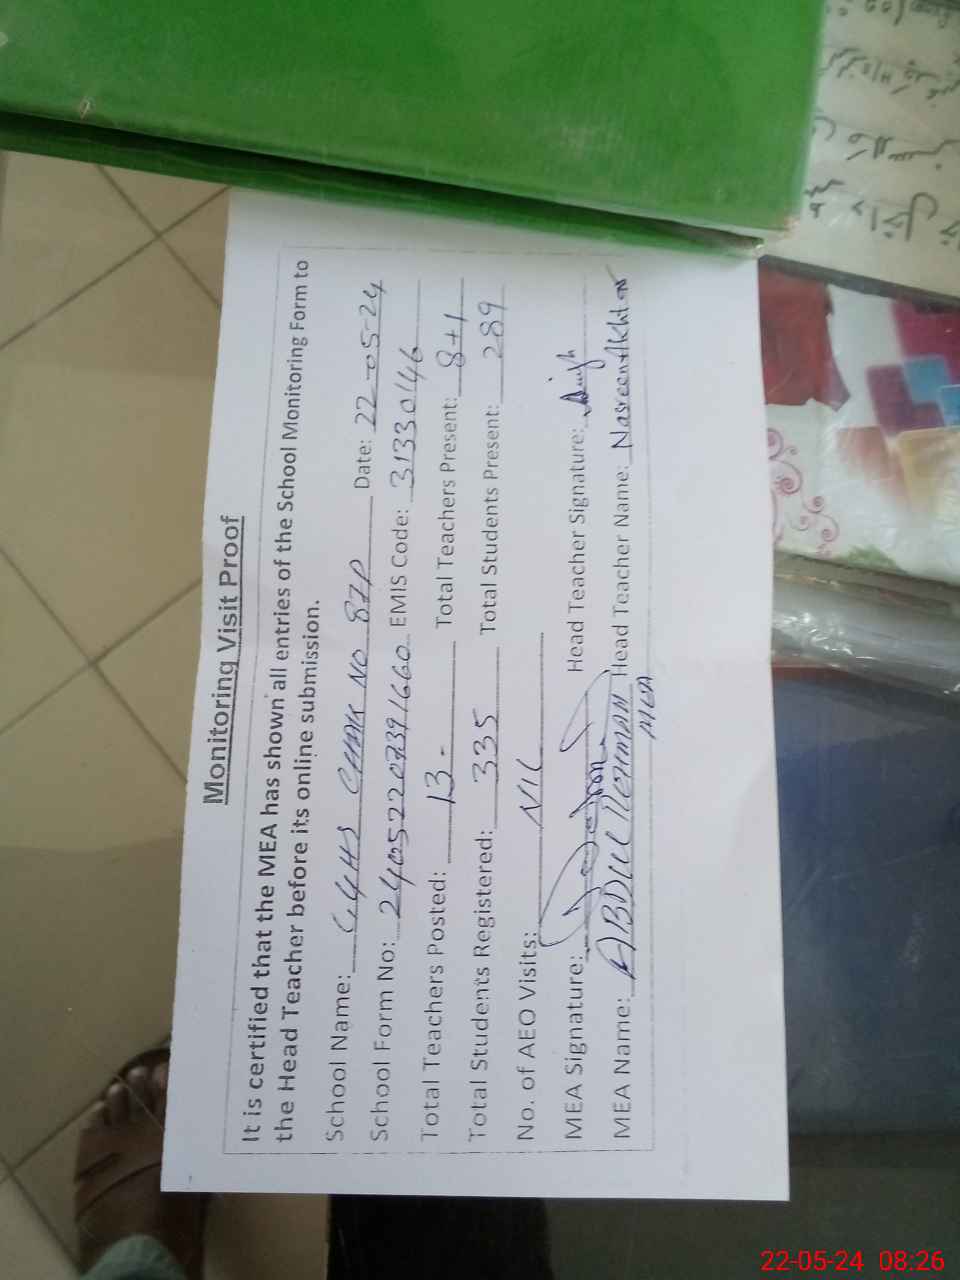 Monitoring Visit Proof
It is certified that the MEA has shown all entries of the School Monitoring Form to
the Head Teacher before its online submission.
School Name: GGHS CHAK NO 87P Date: 22-05-24
School Form No: 24052207391660 EMIS Code: 31330146
Total Teachers Posted: 13- Total Teachers Present: 8+1
Total Students Registered: 335 Total Students Present: 289
No. of AEO Visits: NIL
MEA Signature: Head Teacher Signature:
MEA Name: ABDUL REHMAN Head Teacher Name: Nasreen Akhtar
MEA
22-05-24 08:26